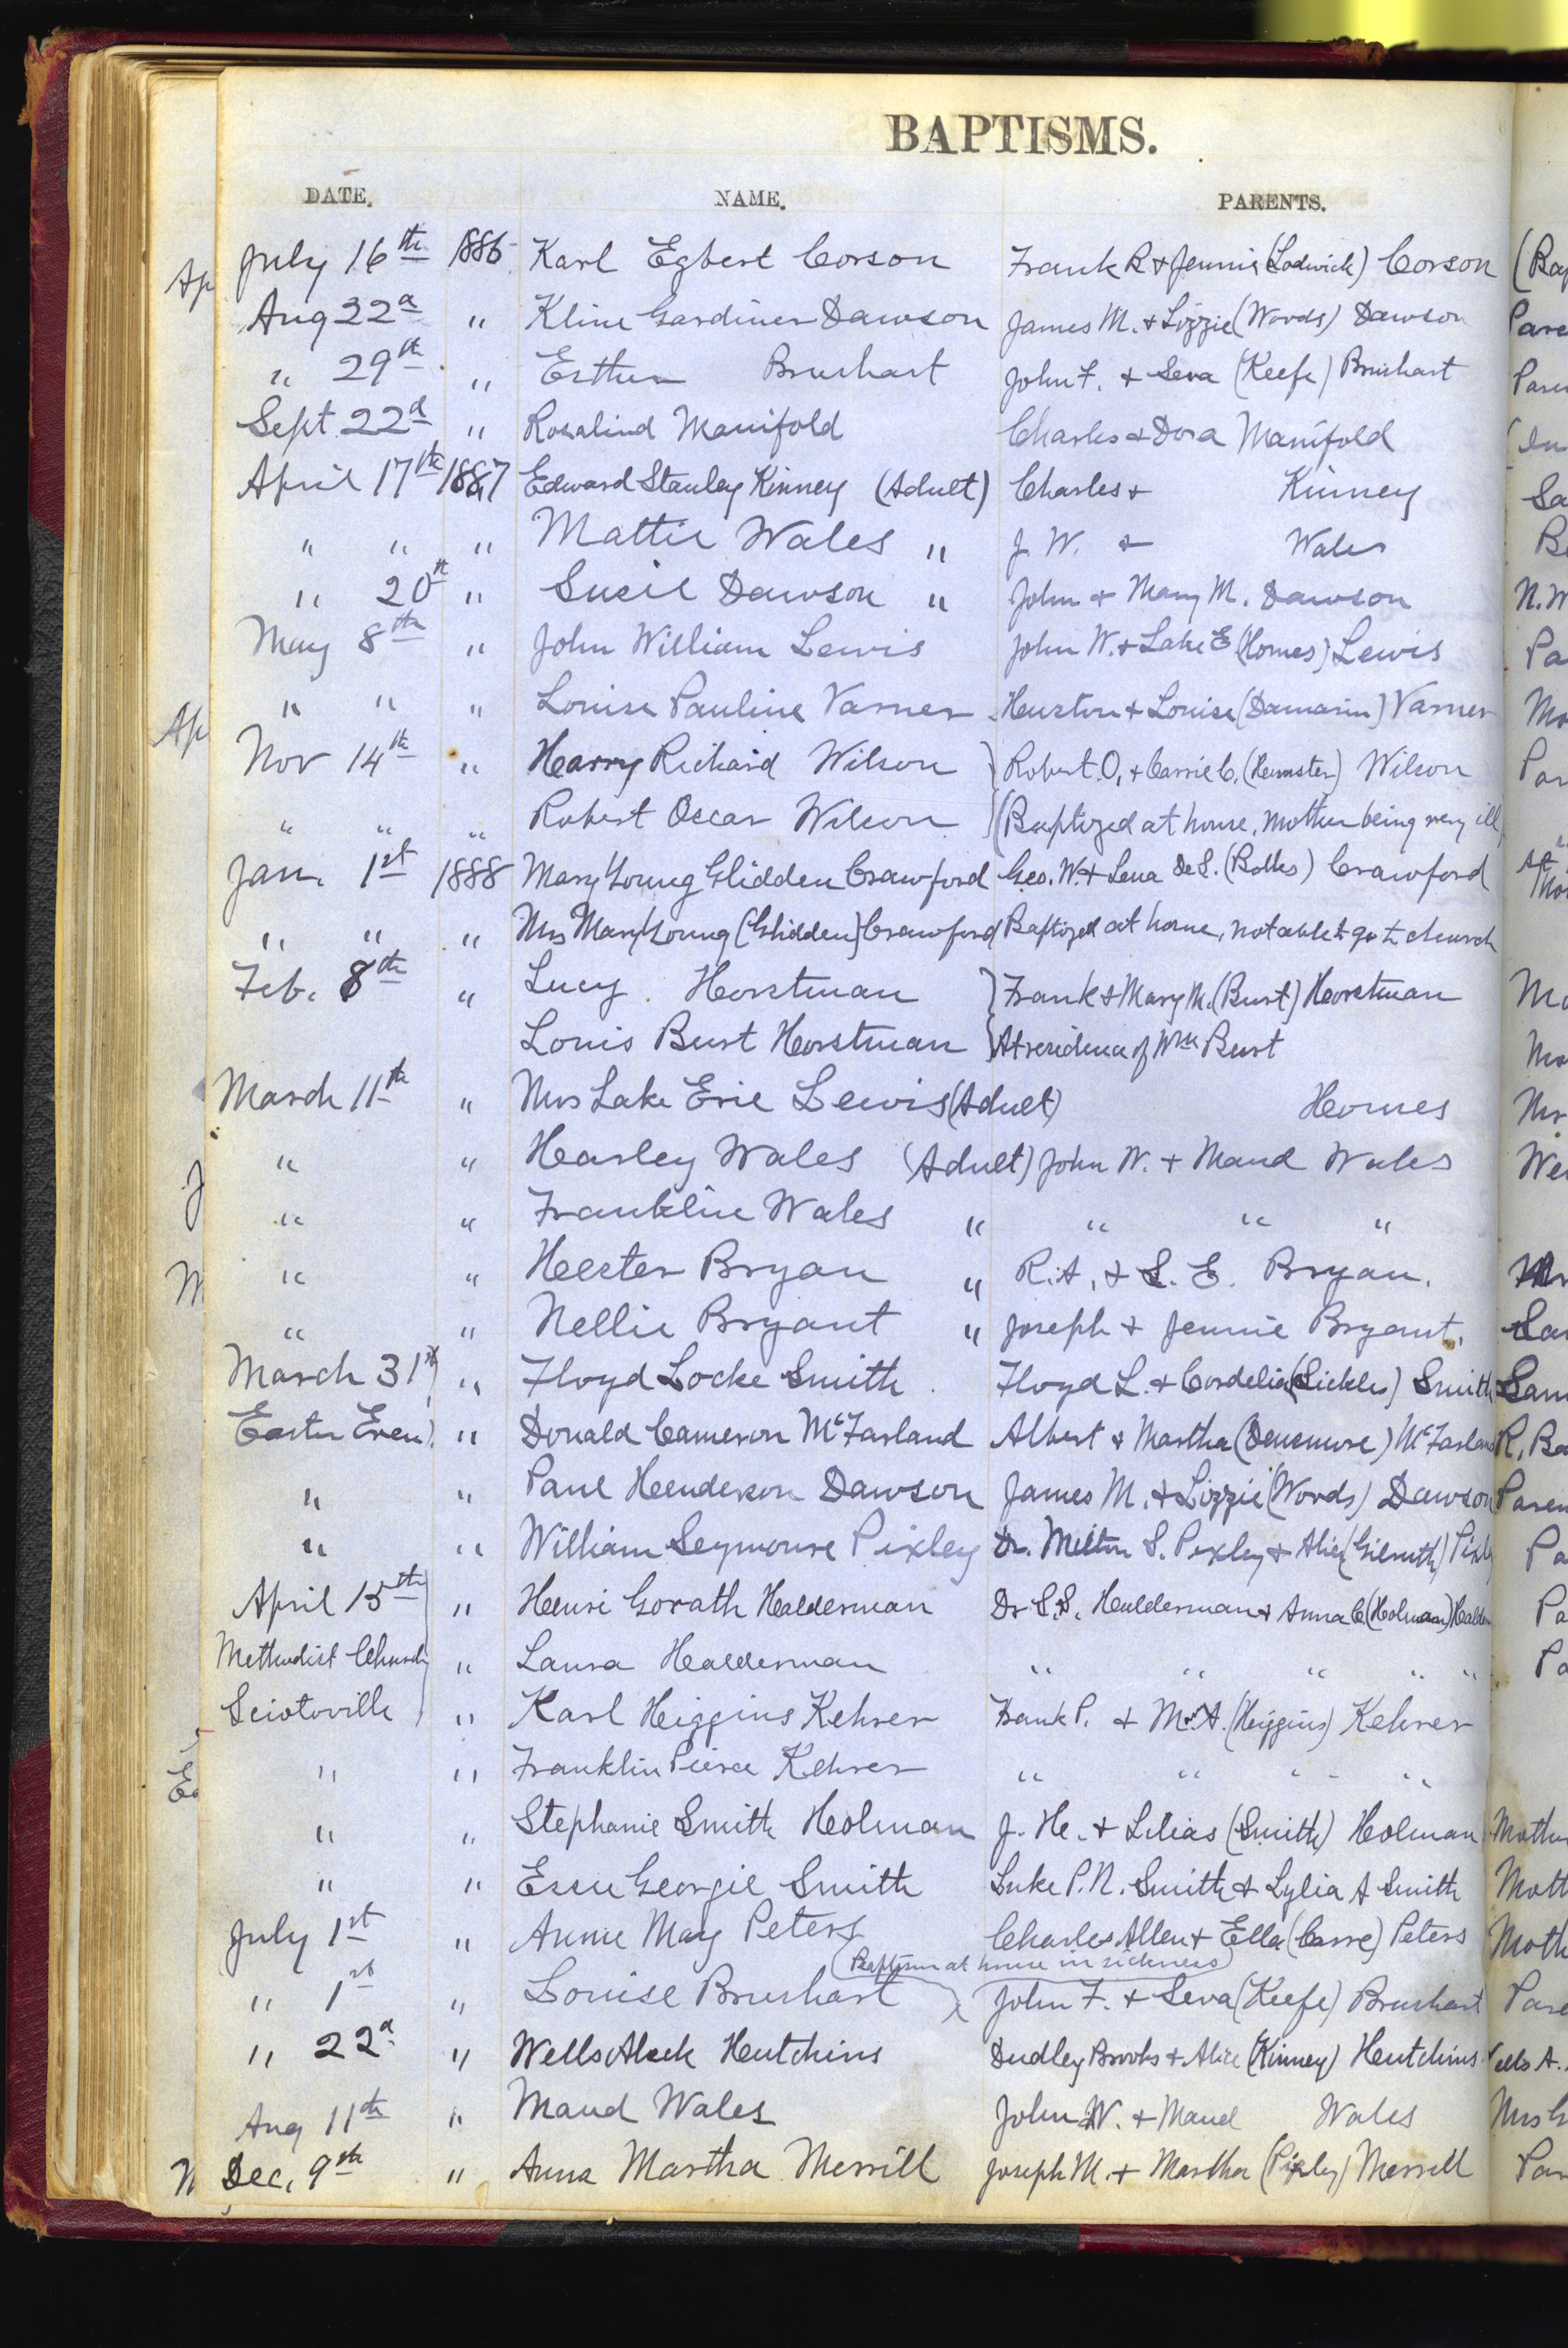 BAPTISMS.
DATE. NAME. PARENTS.
July 16th 1886 Karl Egbert Corson Frank R & Jennie (Lodwick) Corson
Aug 22d " Kline Gardiner Dawson James M. & Lizzie (Woods) Dawson
" 29th " Esther Brushart John F. & Seva (Keefe) Brushart
Sept. 22d " Rosalind Manifold Charles & Dora Manifold
April 17th 1887 Edward Stanley Kinney (Adult) Charles & Kinney
" " " Mattie Wales " J. W. & Wales
" 20th " Susie Dawson " John & Mary M. Dawson
May 8th " John William Lewis John W. & Lake E (Homes) Lewis
" " " Louise Pauline Varner Huston & Louise (Damarin) Varner
Nov 14th " Harry Richard Wilson } Robert O. & Carrie C. (Hemster) Wilson
" " " Robert Oscar Wilson } (Baptized at house, mother being very ill,
Jan. 1st 1888 Mary Young Glidden Crawford Geo. W. & Lena De S. (Bolles) Crawford
" " " Mrs Mary Young (Glidden) Crawford Baptized at home, not able to go to church
Feb. 8th " Lucy Horstman } Frank & Mary M. (Burt) Horstman
Louis Burt Horstman } At residence of Wm Burt
March 11th " Mrs Lake Erie Lewis (Adult) Homes
" " Harley Wales (Adult) John W. & Maud Wales
" " Franklin Wales " " " "
" " Hester Bryan " R. A. & S. E. Bryan.
" " Nellie Bryant " Joseph & Jennie Bryant.
March 31st " Floyd Locke Smith Floyd L. & Cordelia (Sickles) Smith
Easter Even) " Donald Cameron McFarland Albert & Martha (Densmore) McFarland
" " Paul Henderson Dawson James M. & Lizzie (Woods) Dawson
" " William Seymoure Pixley Dr. Milton S. Pixley & Alice (Gilruth)
April 15th " Henri Gorath Halderman Dr S. S. Halderman & Anna C (Holman)
Methodist Church " Laura Halderman " " " " "
Sciotoville " Karl Higgins Kehrer Frank P. & M. A. (Higgins) Kehrer
" " Franklin Pierce Kehrer " " " "
" " Stephanie Smith Holman J. H. & Lilias (Smith) Holman
" " Essie Georgie Smith Luke P. N. Smith & Lylia A Smith
July 1st " Annie May Peters Charles Allen & Ella (Carre) Peters
(Baptism at house in sickness)
" 1st " Louise Brushart } John F. & Seva (Keefe) Brushart
" 22d " Wells Aleck Hutchins Dudley Brooks & Alice (Kinney) Hutchins
Aug 11th " Maud Wales John W. & Maud Wales
Dec. 9th " Anna Martha Merrill Joseph M. & Martha (Pixley) Merrill